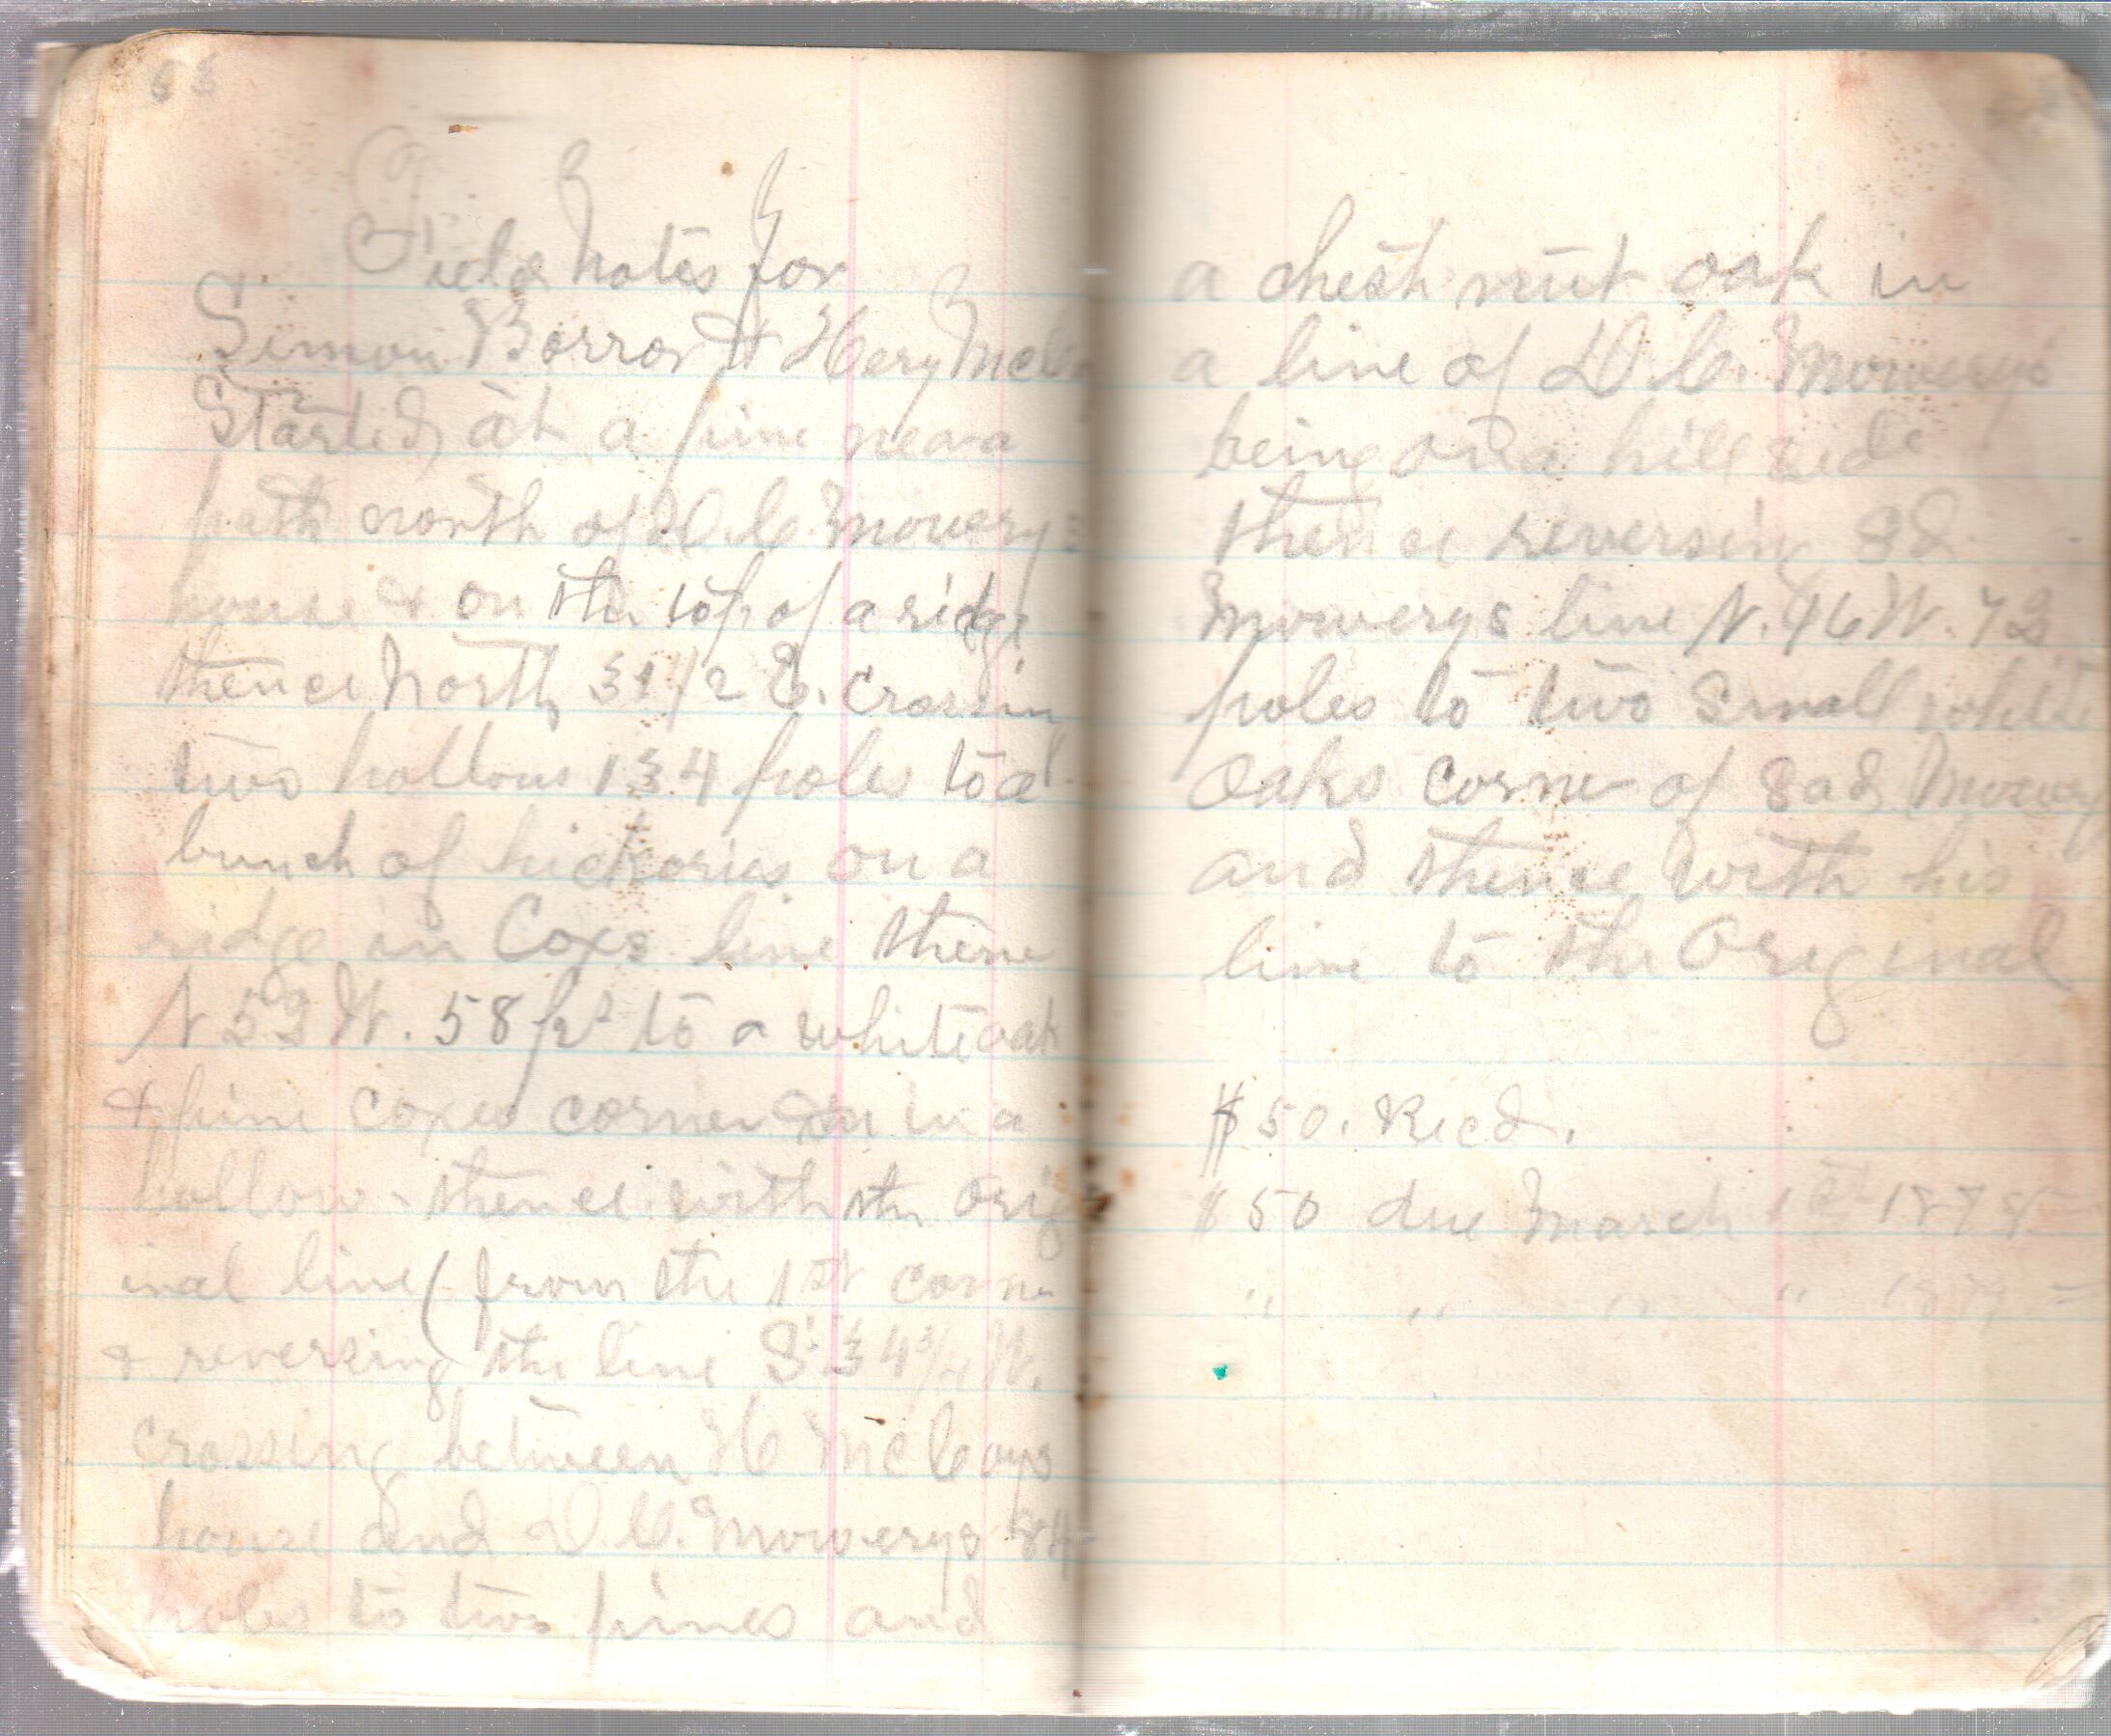 Field Notes for
Simon Borror & Hery McC
Started at a pine near a
path north of D. C. Mowery's
house & on the top of a ridge
thence North 31 1/2 E. crossin
two hollows 134 poles to a
bunch of hickories on a
ridge in Coxs line thence
N 53 W. 58 ps to a white oak
& pine Coxes corner in a
hollow - thence with the orig
inal line (from the 1st corner
& reversing the line S 34 3/4 W.
crossing between H McCoys
house and D. C. Mowerys 84
poles to two pines and
a chest nut oak in
a line of D. C. Mowerys
being on a hill side
thence reversing Sd
Mowerys line N. 46 W. 72
poles to two Small white
Oaks Corner of Sad Mowery
and thence with his
line to the Original
$50. Recd.
$50 due March 1st 1878
" " " " 1879